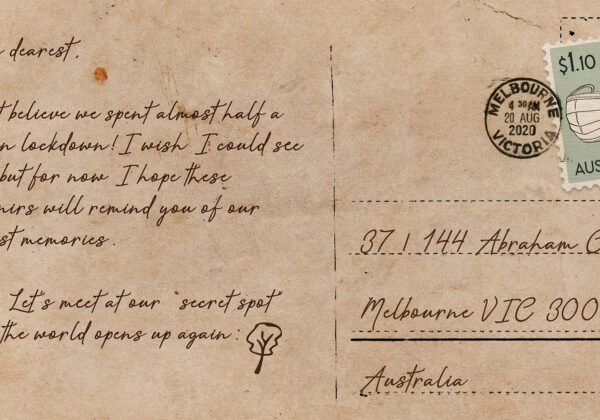 dearest,
't believe we spent almost half a
in lockdown! I wish I could see
but for now I hope these
nirs will remind you of our
st memories.
Let's meet at our "secret spot"
the world opens up again:
$1.10
AUS
MELBOURNE
4 30 AM
20 AUG
2020
VICTORIA
37 / 144 Abraham
Melbourne VIC 300
Australia